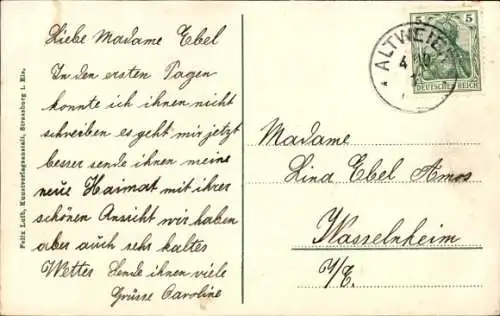 Liebe Madame Ebel
In den ersten Tagen
konnte ich ihnen nicht
schreiben es geht mir jetzt
besser sende ihnen meine
neue Haimat mit ihrer
schönen Ansicht wir haben
aber auch sehr kaltes
Wetter Sende ihnen viele
Grüsse Caroline
Felix Luib, Kunstverlagsanstalt, Strassburg i. Els.
5 5
ALTWEIER
DEUTSCHES REICH
Madame
Lina Ebel Amos
Wasselnheim
I/E.